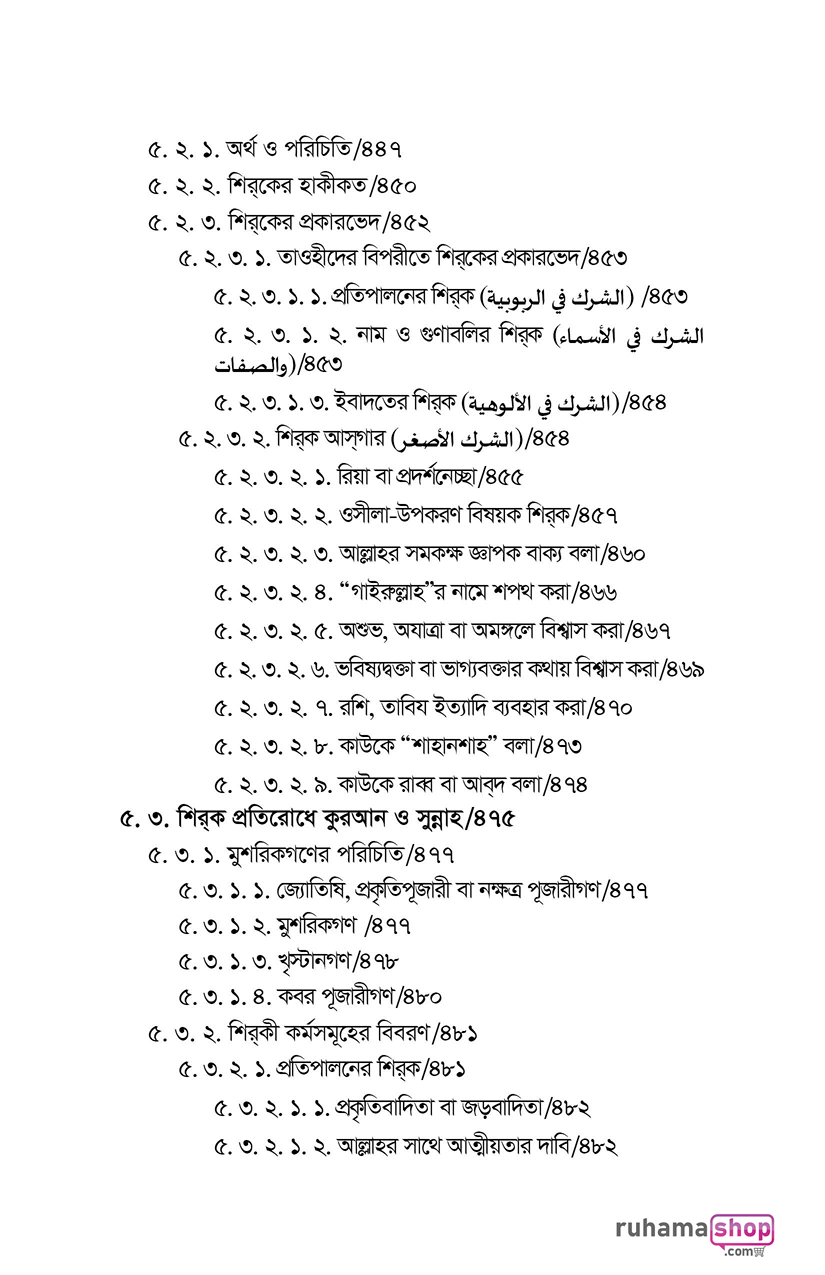 ৫. ২. ১. অর্থ ও পরিচিতি/৪৪৭
৫. ২. ২. শির্‌কের হাকীকত/৪৫০
৫. ২. ৩. শির্‌কের প্রকারভেদ/৪৫২
৫. ২. ৩. ১. তাওহীদের বিপরীতে শির্‌কের প্রকারভেদ/৪৫৩
৫. ২. ৩. ১. ১. প্রতিপালনের শির্‌ক (الشرك في الربوبية) /৪৫৩
৫. ২. ৩. ১. ২. নাম ও গুণাবলির শির্‌ক (الشرك في الأسماء
والصفات)/৪৫৩
৫. ২. ৩. ১. ৩. ইবাদতের শির্‌ক (الشرك في الألوهية)/৪৫৪
৫. ২. ৩. ২. শির্‌ক আস্‌গার (الشرك الأصغر)/৪৫৪
৫. ২. ৩. ২. ১. রিয়া বা প্রদর্শনেচ্ছা/৪৫৫
৫. ২. ৩. ২. ২. ওসীলা-উপকরণ বিষয়ক শির্‌ক/৪৫৭
৫. ২. ৩. ২. ৩. আল্লাহর সমকক্ষ জ্ঞাপক বাক্য বলা/৪৬০
৫. ২. ৩. ২. ৪. “গাইরুল্লাহ”র নামে শপথ করা/৪৬৬
৫. ২. ৩. ২. ৫. অশুভ, অযাত্রা বা অমঙ্গলে বিশ্বাস করা/৪৬৭
৫. ২. ৩. ২. ৬. ভবিষ্যদ্বক্তা বা ভাগ্যবক্তার কথায় বিশ্বাস করা/৪৬৯
৫. ২. ৩. ২. ৭. রশি, তাবিয ইত্যাদি ব্যবহার করা/৪৭০
৫. ২. ৩. ২. ৮. কাউকে “শাহানশাহ” বলা/৪৭৩
৫. ২. ৩. ২. ৯. কাউকে রাব্ব বা আব্‌দ বলা/৪৭৪
৫. ৩. শির্‌ক প্রতিরোধে কুরআন ও সুন্নাহ/৪৭৫
৫. ৩. ১. মুশরিকগণের পরিচিতি/৪৭৭
৫. ৩. ১. ১. জ্যোতিষি, প্রকৃতিপূজারী বা নক্ষত্র পূজারীগণ/৪৭৭
৫. ৩. ১. ২. মুশরিকগণ /৪৭৭
৫. ৩. ১. ৩. খৃস্টানগণ/৪৭৮
৫. ৩. ১. ৪. কবর পূজারীগণ/৪৮০
৫. ৩. ২. শির্‌কী কর্মসমূহের বিবরণ/৪৮১
৫. ৩. ২. ১. প্রতিপালনের শির্‌ক/৪৮১
৫. ৩. ২. ১. ১. প্রকৃতিবাদিতা বা জড়বাদিতা/৪৮২
৫. ৩. ২. ১. ২. আল্লাহর সাথে আত্মীয়তার দাবি/৪৮২
ruhamashop
.com